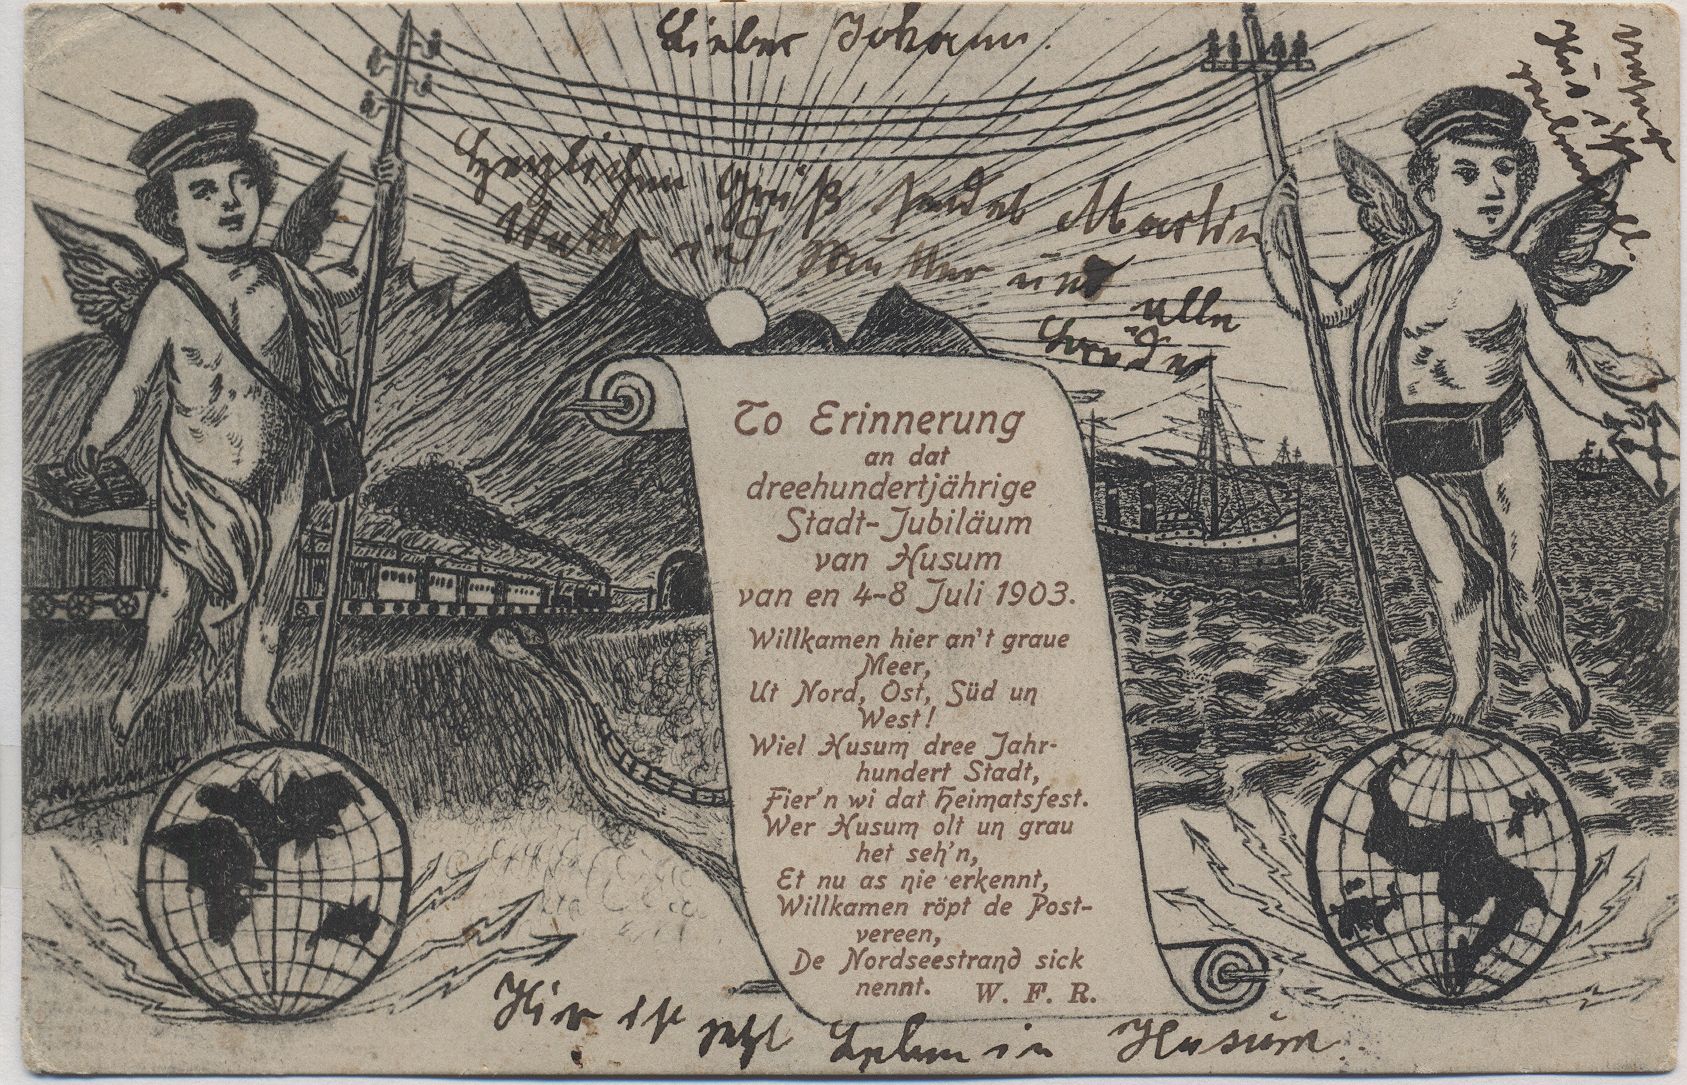 Lieber Johann.
Herzlichen Gruß sendet Martin
Vater und Mutter und
alle
Brüder
To Erinnerung
an dat
dreehundertjährige
Stadt-Jubiläum
van Husum
van en 4-8 Juli 1903.
Willkamen hier an't graue
Meer,
Ut Nord, Ost, Süd un
West!
Wiel Husum dree Jahr-
hundert Stadt,
Fier'n wi dat Heimatsfest.
Wer Husum olt un grau
het seh'n,
Et nu as nie erkennt,
Willkamen röpt de Post-
vereen,
De Nordseestrand sick
nennt. W. F. R.
Hier ist jetzt Leben in Husum.